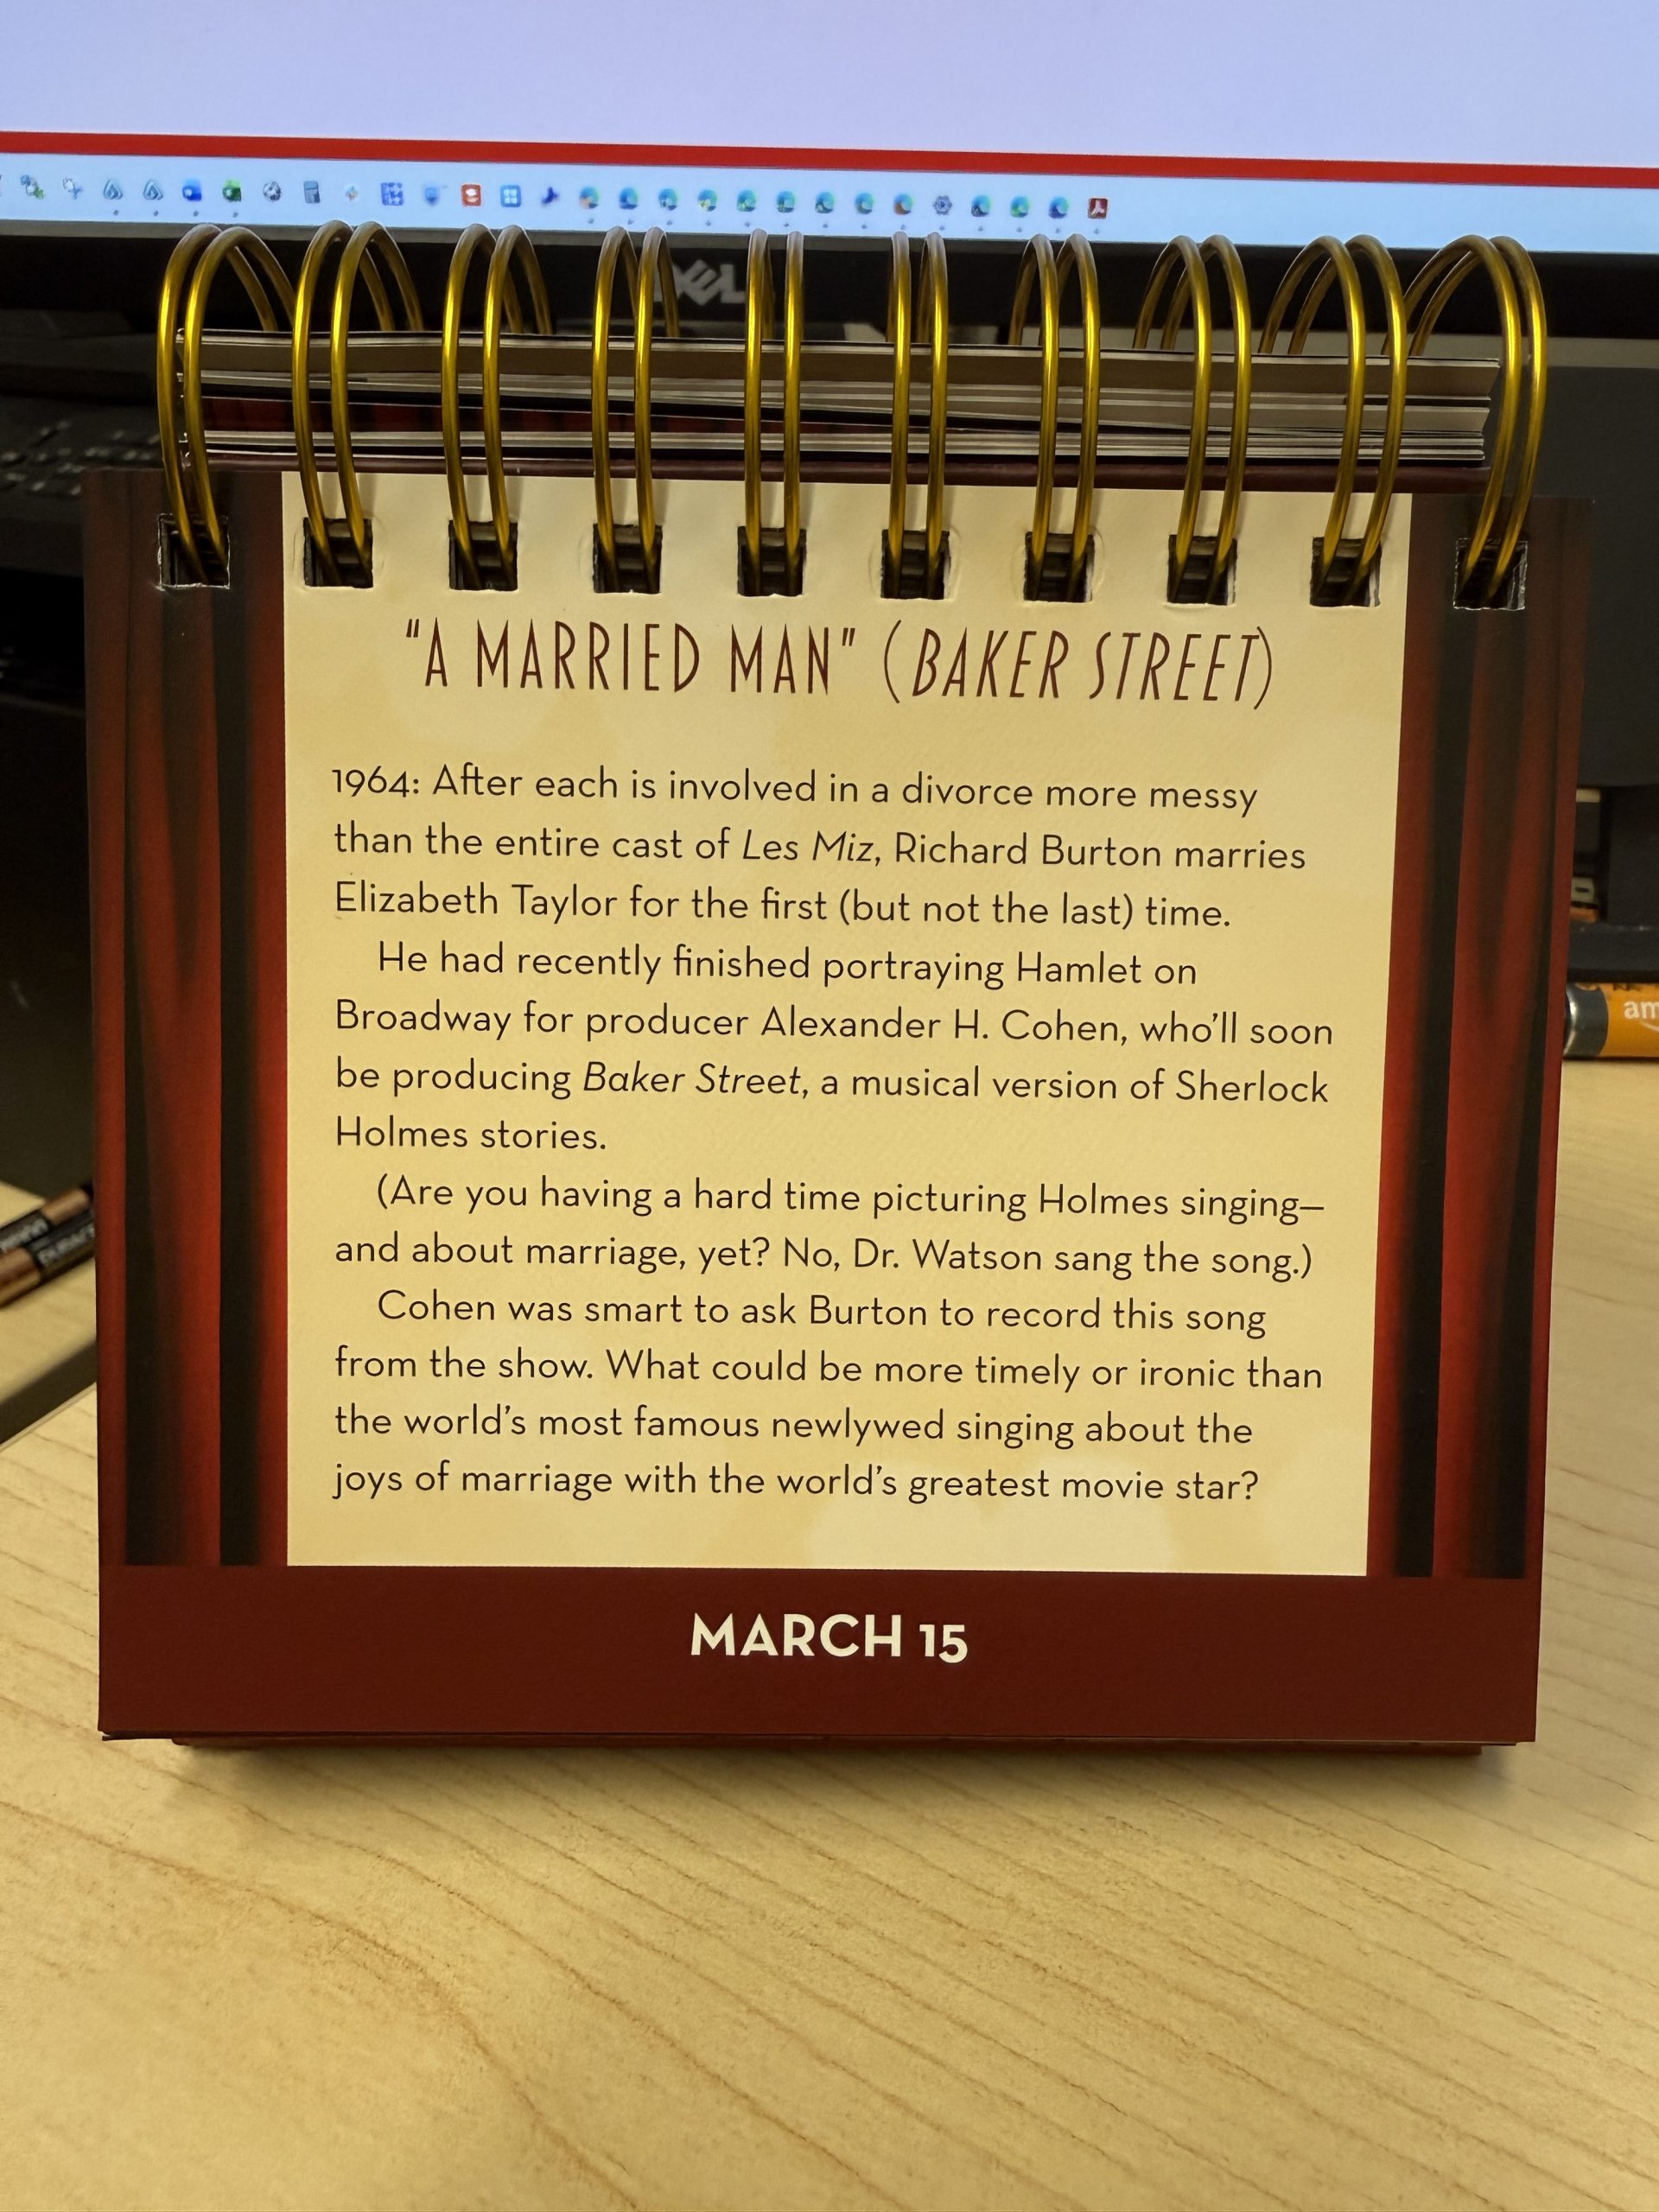 DELL
"A MARRIED MAN" (BAKER STREET)
1964: After each is involved in a divorce more messy
than the entire cast of Les Miz, Richard Burton marries
Elizabeth Taylor for the first (but not the last) time.
He had recently finished portraying Hamlet on
Broadway for producer Alexander H. Cohen, who'll soon
be producing Baker Street, a musical version of Sherlock
Holmes stories.
(Are you having a hard time picturing Holmes singing—
and about marriage, yet? No, Dr. Watson sang the song.)
Cohen was smart to ask Burton to record this song
from the show. What could be more timely or ironic than
the world's most famous newlywed singing about the
joys of marriage with the world's greatest movie star?
MARCH 15
am